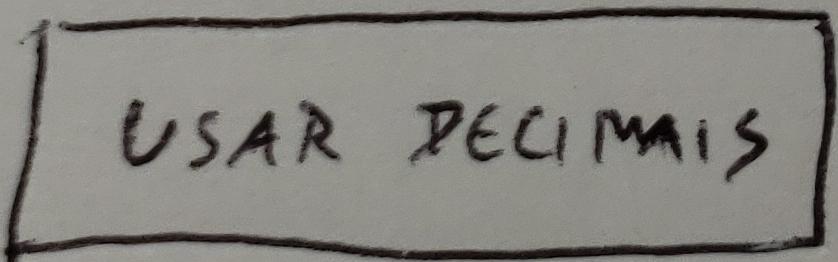 USAR DECIMAIS